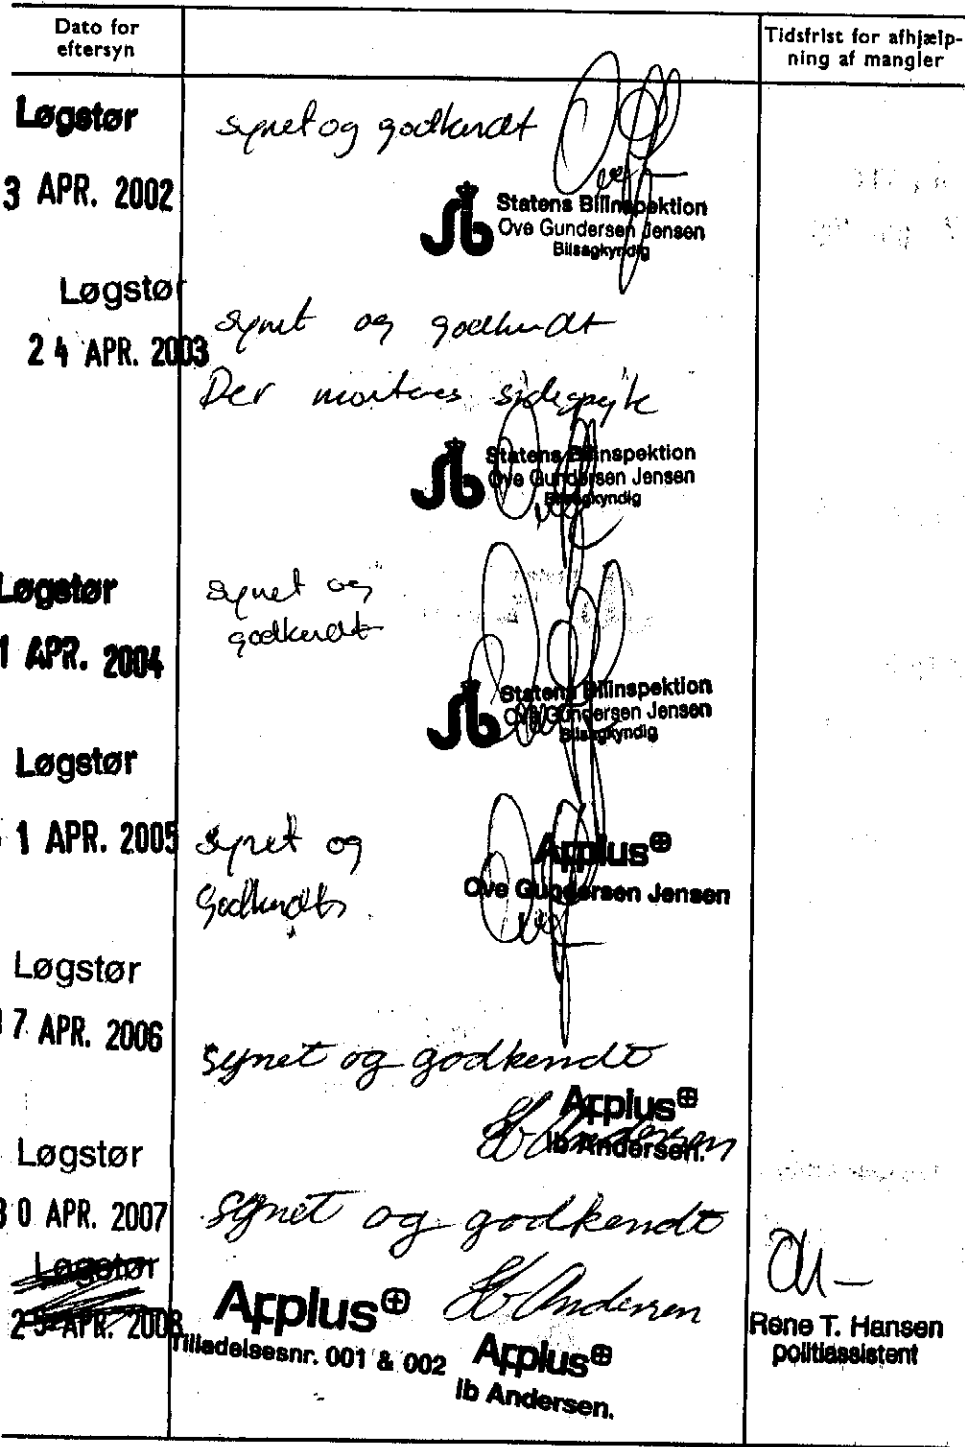 Dato for
eftersyn
Tidsfrist for afhjælp-
ning af mangler
Løgstør
synet og godkendt
3 APR. 2002
Statens Bilinspektion
Ove Gundersen Jensen
Bilsagkyndig
Løgstør
synet og godkendt
24 APR. 2003
Der monteres
Statens Bilinspektion
Ove Gundersen Jensen
Bilsagkyndig
Løgstør
synet og
godkendt
1 APR. 2004
Statens Bilinspektion
Ove Gundersen Jensen
Bilsagkyndig
Løgstør
1 APR. 2005
synet og
godkendt
Applus⊕
Ove Gundersen Jensen
Løgstør
7 APR. 2006
synet og godkendt
Applus⊕
Ib Andersen
Ib Andersen.
Løgstør
0 APR. 2007
synet og godkendt
Løgstør
25 APR. 2008
Applus⊕
Ib Andersen
Tilladelsesnr. 001 & 002
Applus⊕
Ib Andersen.
Rene T. Hansen
politiassistent